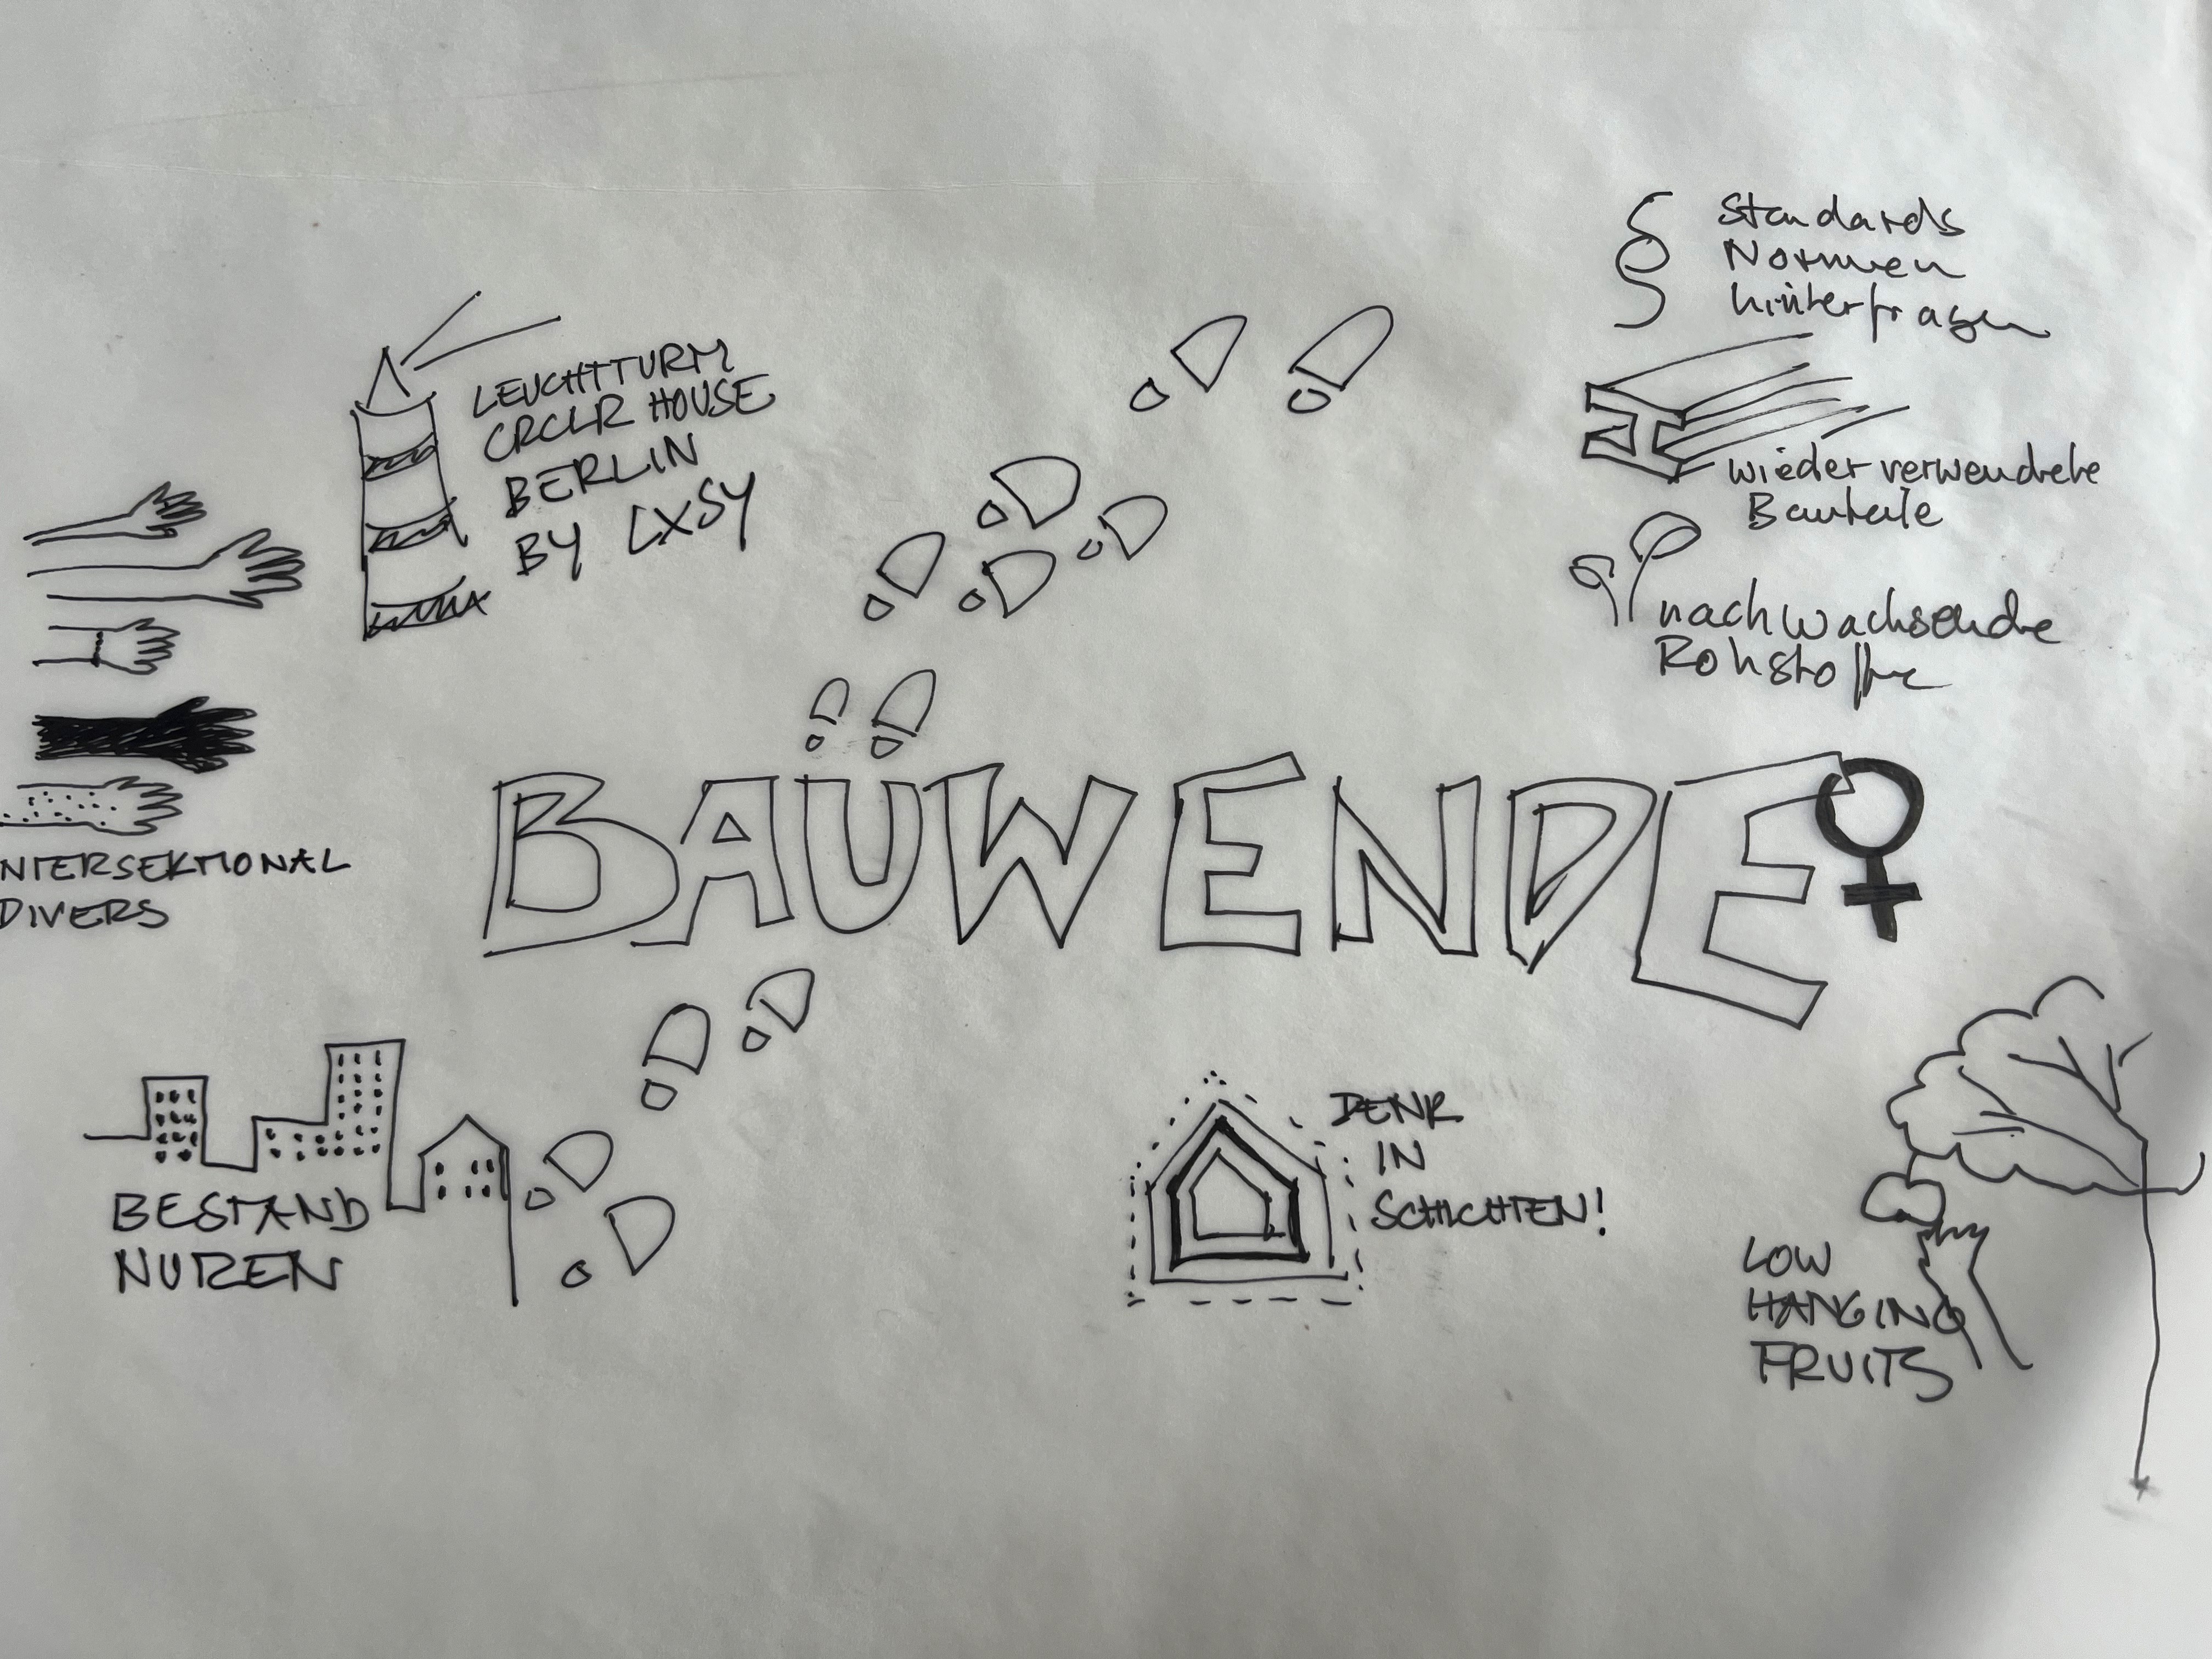 § Standards
Normen
hinterfragen
LEUCHTTURM
CRCLR HOUSE
BERLIN
BY LXSY
wiederverwendete
Bauteile
nachwachsende
Rohstoffe
BAÜWENDE♀
NTERSEKTIONAL
DIVERS
BESTAND
NUTZEN
DENK
IN
SCHICHTEN!
LOW
HANGING
FRUITS